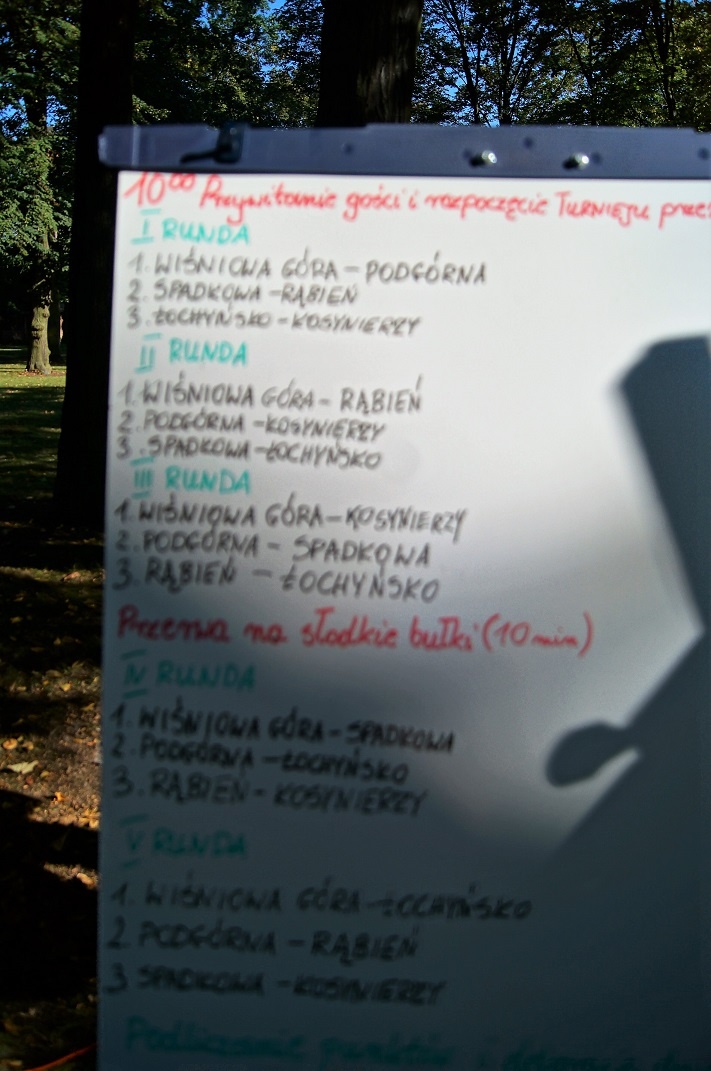 10⁰⁰ Przywitanie gości i rozpoczęcie TURNIEJU przez
I RUNDA
1. WIŚNIOWA GÓRA - PODGÓRNA
2. SPADKOWA - RĄBIEŃ
3. ŁOCHYŃSKO - KOSYNIERZY
II RUNDA
1. WIŚNIOWA GÓRA - RĄBIEŃ
2. PODGÓRNA - KOSYNIERZY
3. SPADKOWA - ŁOCHYŃSKO
III RUNDA
1. WIŚNIOWA GÓRA - KOSYNIERZY
2. PODGÓRNA - SPADKOWA
3. RĄBIEŃ - ŁOCHYŃSKO
Przerwa na słodkie bułki (10 min)
IV RUNDA
1. WIŚNIOWA GÓRA - SPADKOWA
2. PODGÓRNA - ŁOCHYŃSKO
3. RĄBIEŃ - KOSYNIERZY
V RUNDA
1. WIŚNIOWA GÓRA - ŁOCHYŃSKO
2. PODGÓRNA - RĄBIEŃ
3 SPADKOWA - KOSYNIERZY
Podliczanie punktów i